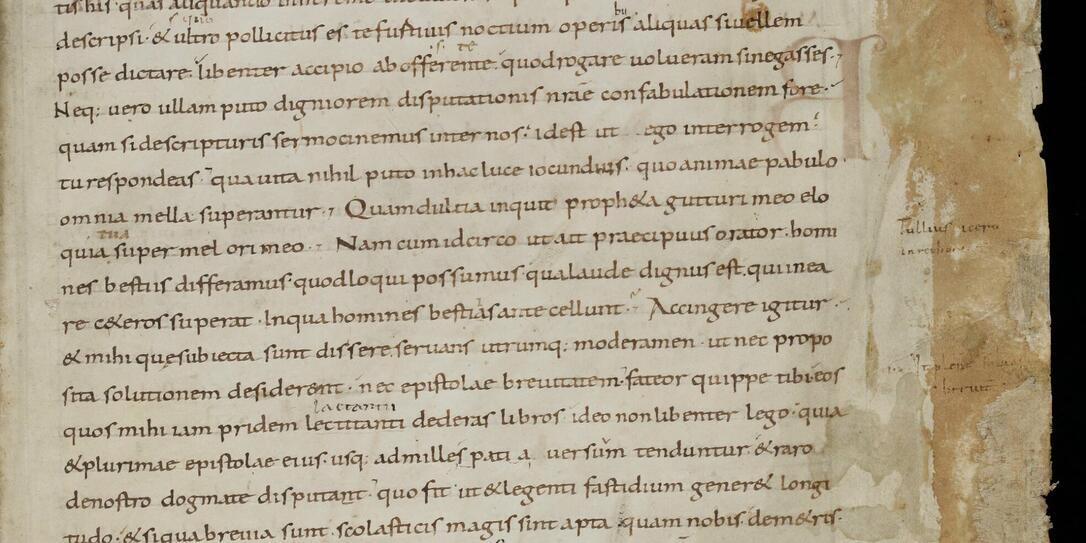 tis his quas aliquando
descripsi · & ultro pollicitus es te furtiuis noctium operis aliquas si uellem
posse dictare · libenter accipio ab offerente · quod rogare uolueram si negasses ·
Neq; uero ullam puto digniorem disputationis nrae confabulationem fore ·
quam si de scripturis sermocinemur inter nos · id est ut ego interrogem
tu respondeas · qua uita nihil puto in hac luce iocundius · quo animae pabulo
omnia mella superantur · Quam dulcia inquit proph&a gutturi meo elo
quia tua super mel ori meo · Nam cum idcirco ut ait praecipuus orator · homi
nes bestiis differamus quod loqui possumus qua laude dignus est · qui in ea
re c&eros superat · In qua homines bestias ante cellunt · Accingere igitur
& mihi que subiecta sunt dissere seruans utrumq; moderamen · ut nec propo
sita solutionem desiderent · nec epistolae breuitatem · fateor quippe tibi eos
lactantii
quos mihi iam pridem lectitanti dederas libros ideo non libenter lego · quia
& plurimae epistolae eius · usq; ad mille spatia uersuum tenduntur & raro
de nostro dogmate disputant · quo fit ut & legenti fastidium gener& longi
tudo · & si qua breuia sunt · scolasticis magis sint apta quam nobis · de m&ris
Tullius icero